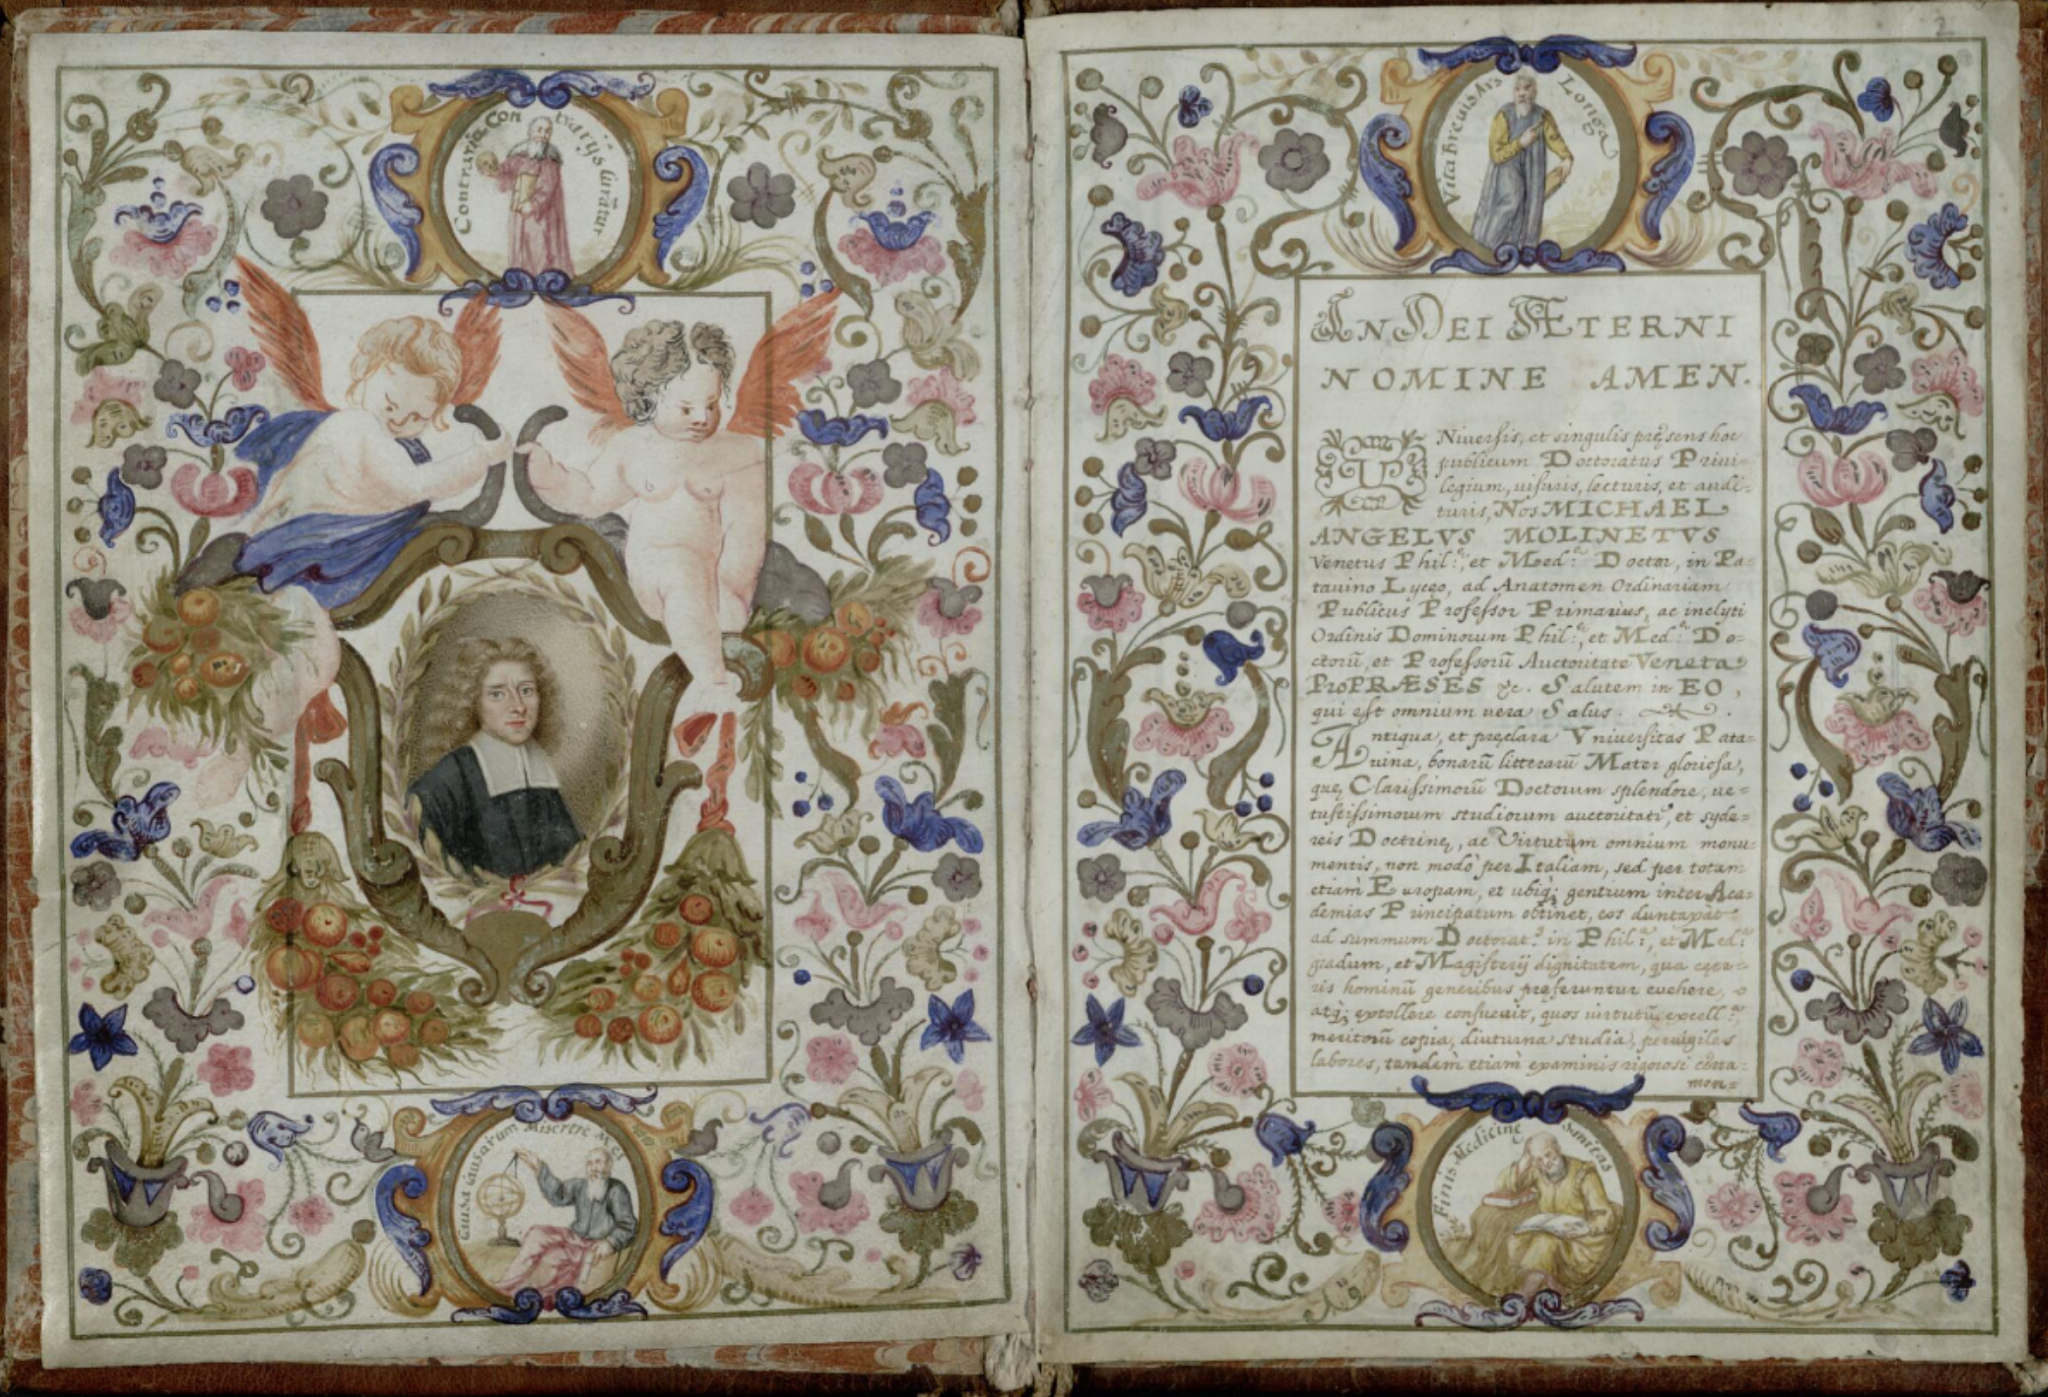 Contraria Contrarijs Curãtur
Causa Causarum Miserere Mei
2
Vita Breuis Ars Longa
IN DEI ÆTERNI
NOMINE AMEN.
VNiuersis, et singulis pręsens hoc
publicum Doctoratus Priui-
legium, uisuris, lecturis, et audi-
turis, Nos MICHAEL
ANGELVS MOLINETVS
Venetus Phil:ę, et Med:ę Doctor, in Pa-
tauino Lyceo, ad Anatomen Ordinariam
Publicus Professor Primarius, ac inclyti
Ordinis Dominorum Phil:ę, et Med:ę Do-
ctorũ, et Professorũ Auctoritate Veneta
ProPRÆSES &c. Salutem in EO,
qui est omnium uera Salus.
Antiqua, et pręclara Vniuersitas Pata-
uina, bonarũ litterarũ Mater gloriosa,
quę Clarissimorũ Doctorum splendore, ue-
tustissimorum studiorum auctoritatĩ, et syde-
reis Doctrinę, ac Virtutum omnium monu-
mentis, non modò per Italiam, sed per totam
etiàm Europam, et ubiq; gentium inter Aca-
demias Principatum obtinet, eos duntaxàt
ad summum Doctorat:s in Phil:a, et Med:a
gradum, et Magisterij dignitatem, qua cęte-
ris hominũ generibus pręferuntur euehere,
atq; extollere consueuit, quos uirtutũ, excell:m
meritorũ copia, diuturna studia, peruigiles
labores, tandèm etiàm examinis rigorosi certa-
men-
Finis Medicinę Sanitas